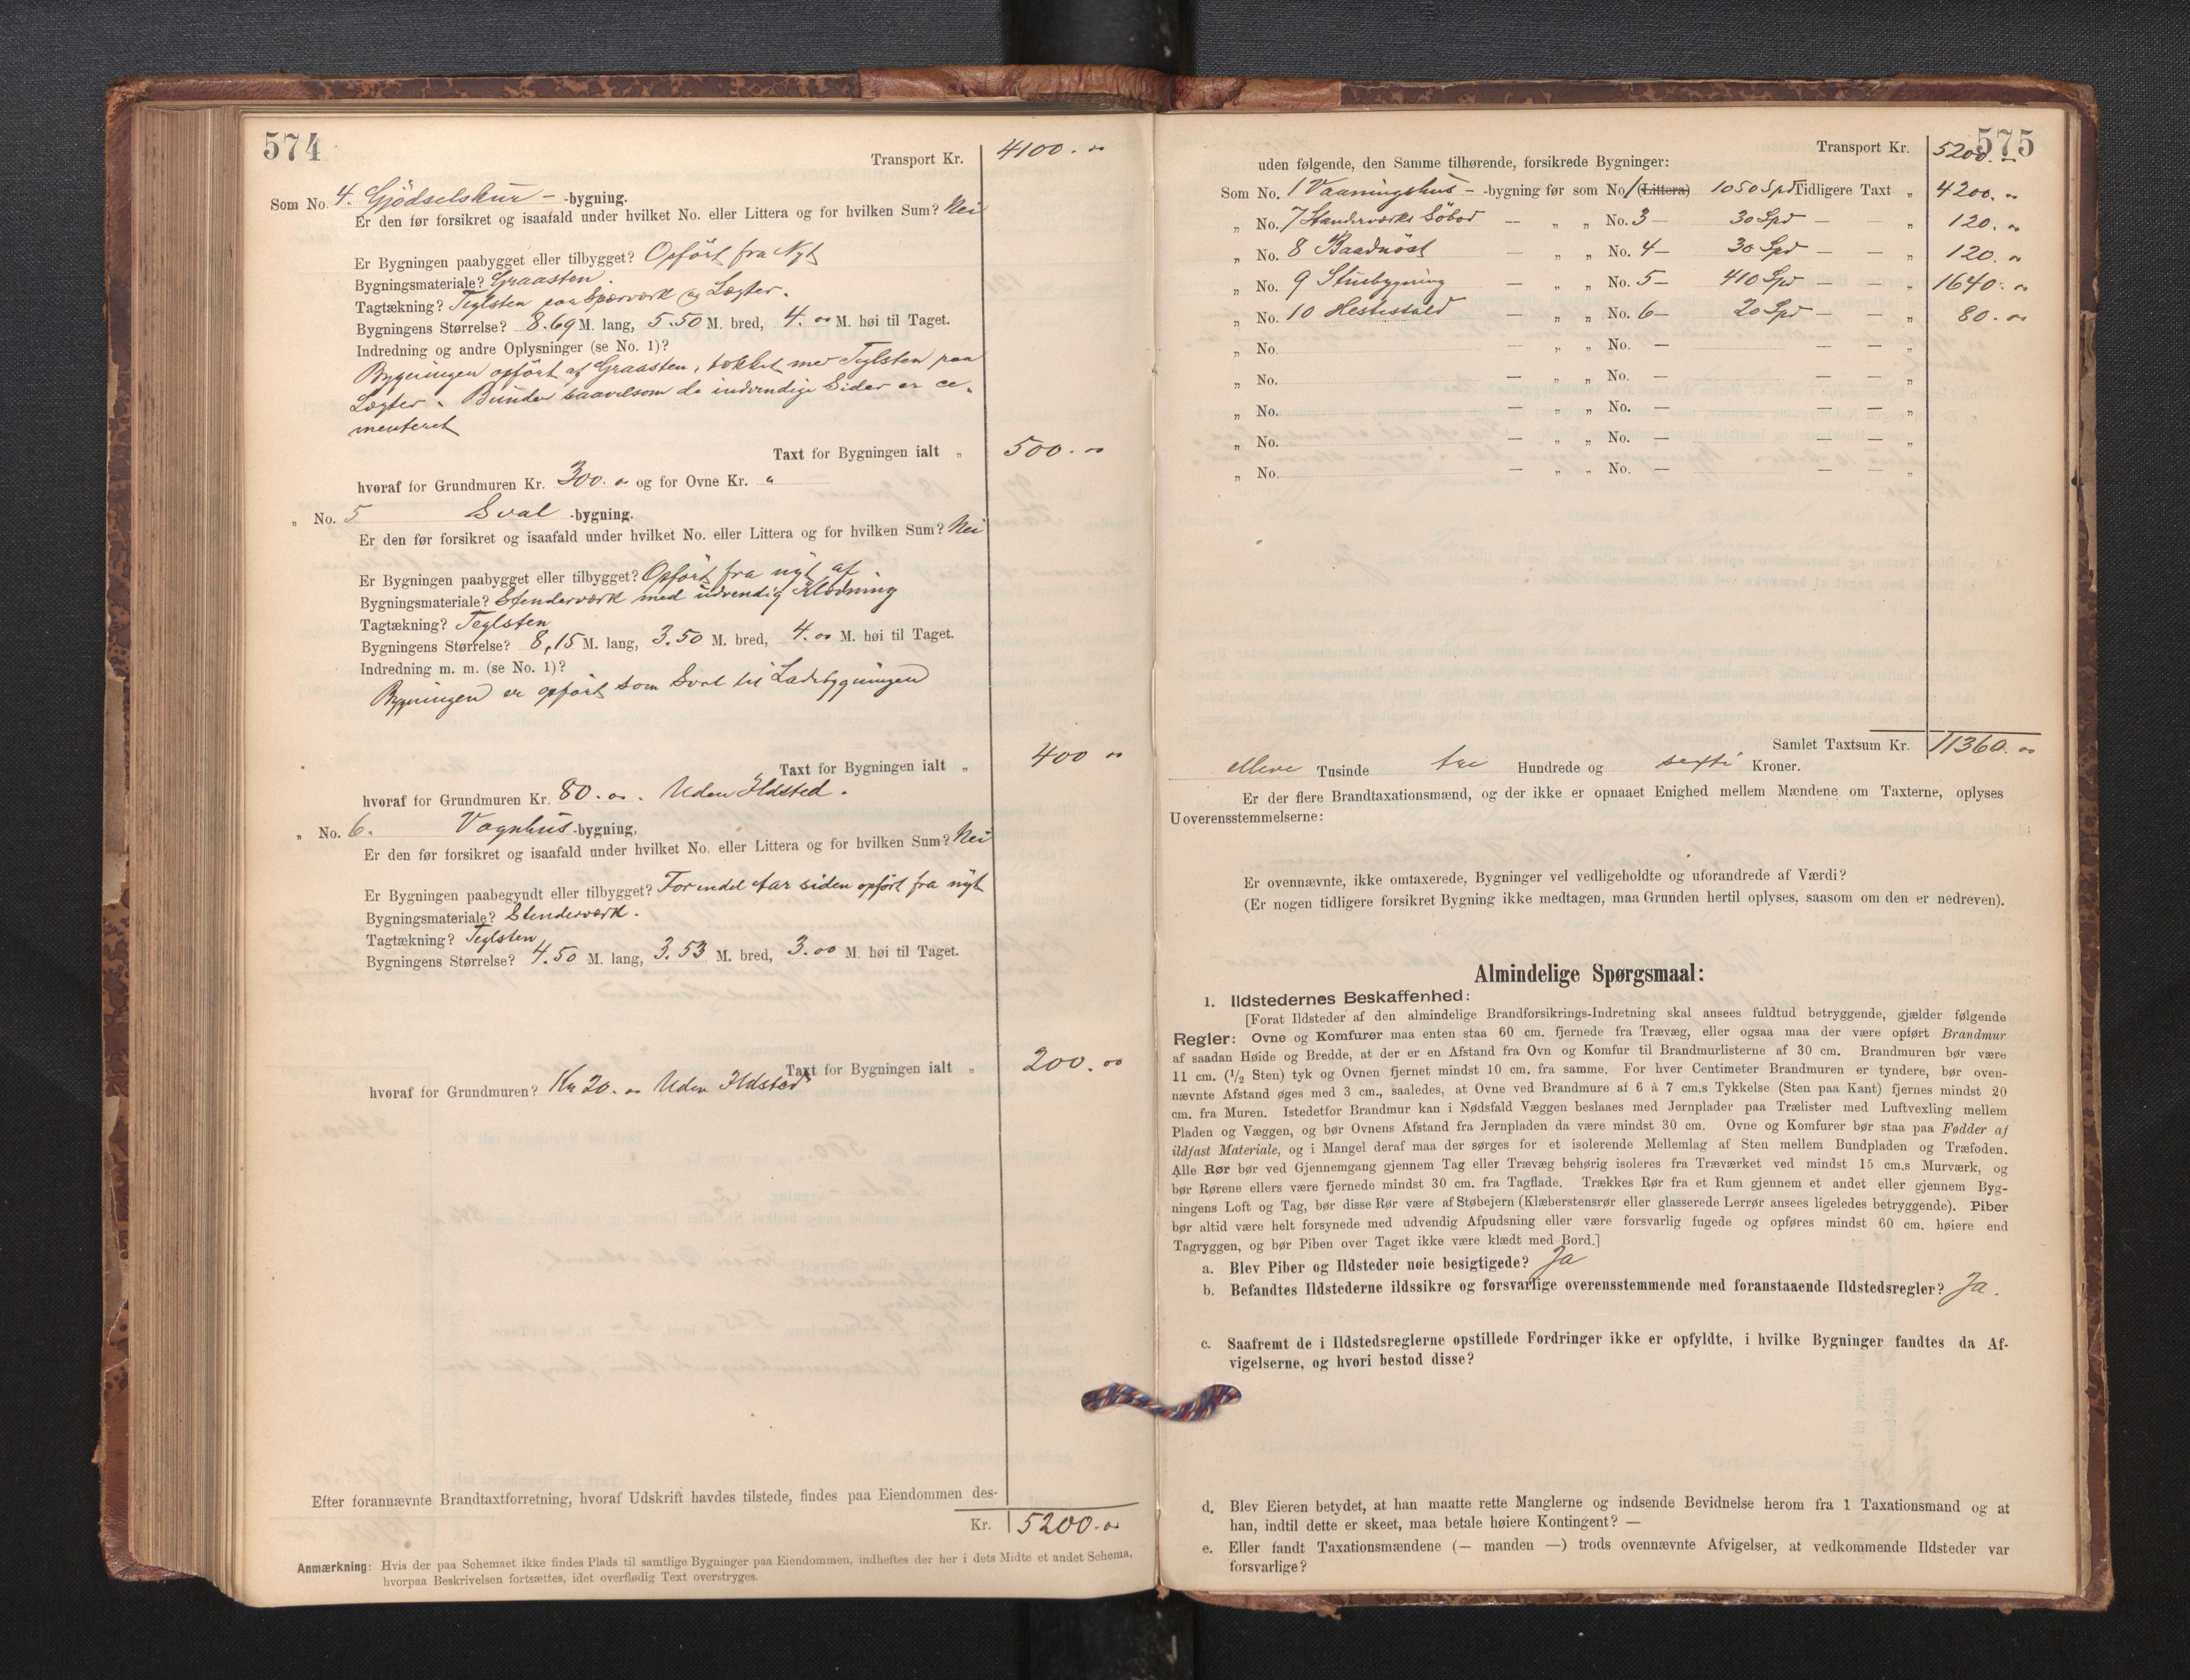 574
Transport Kr. 4100.00
Som No. 4. Gjödselskur - -bygning.
Er den før forsikret og isaafald under hvilket No. eller Littera og for hvilken Sum? Nei
Er Bygningen paabygget eller tilbygget? Opført fra Nyt
Bygningsmateriale? Graasten
Tagtækning? Teglsten paa Spærværk og Lægter.
Bygningens Størrelse? 8.69 M. lang, 5.50 M. bred, 4.00 M. høi til Taget.
Indredning og andre Oplysninger (se No. 1)?
Bygningen opført af Graasten, tækket med Teglsten paa
Lægter. Bunden saavelsom de indvendige Sider er ce-
menteret
Taxt for Bygningen ialt „ 500.00
hvoraf for Grundmuren Kr. 300.00 og for Ovne Kr. "
„ No. 5 Sval -bygning.
Er den før forsikret og isaafald under hvilket No. eller Littera og for hvilken Sum? Nei
Er Bygningen paabygget eller tilbygget? Opført fra nyt af
Bygningsmateriale? Stenderværk med udvendig Klædning
Tagtækning? Teglsten
Bygningens Størrelse? 8,15 M. lang, 3.50 M. bred, 4.00 M. høi til Taget.
Indredning m. m. (se No. 1)?
Bygningen er opført som Sval til Ladebygningen
Taxt for Bygningen ialt „ 400 00
hvoraf for Grundmuren Kr. 80.00. Uden Ildsted.
„ No. 6. Vognhus -bygning.
Er den før forsikret og isaafald under hvilket No. eller Littera og for hvilken Sum? Nei
Er Bygningen paabegyndt eller tilbygget? For endel Aar siden opført fra nyt
Bygningsmateriale? Stenderværk.
Tagtækning? Teglsten
Bygningens Størrelse? 4.50 M. lang, 3.53 M. bred, 3.00 M. høi til Taget.
Taxt for Bygningen ialt „ 200.00
hvoraf for Grundmuren? Kr 20.00 Uden Ildsted
Efter forannævnte Brandtaxtforretning, hvoraf Udskrift havdes tilstede, findes paa Eiendommen des-
Kr. 5200.00
Anmærkning: Hvis der paa Schemaet ikke findes Plads til samtlige Bygninger paa Eiendommen, indheftes der her i dets Midte et andet Schema,
hvorpaa Beskrivelsen fortsættes, idet overflødig Text overstryges.
575
Transport Kr. 5200.-
uden følgende, den Samme tilhørende, forsikrede Bygninger:
Som No. 1 Vaaningshus - -bygning før som No 1 (Littera) 1050 Spd Tidligere Taxt „ 4200.00
„ No. 7 Standerværks Söbod — „ „ No. 3 — 30 Spd — „ 120.00
„ No. 8 Baadnöst — „ „ No. 4 — 30 Spd — — „ 120.00
„ No. 9 Stuebygning — „ „ No. 5 — 410 Spd — — „ 1640.00
„ No. 10 Hestestald — „ „ No. 6 — 20 Spd — — „ 80.00
„ No. — „ „ No. — — — „
„ No. — „ „ No. — — — „
„ No. — „ „ No. — — — „
„ No. — „ „ No. — — — „
„ No. — „ „ No. — — — „
Samlet Taxtsum Kr. 11360.00
elleve Tusinde tre Hundrede og sexti Kroner.
Er der flere Brandtaxationsmænd, og der ikke er opnaaet Enighed mellem Mændene om Taxterne, oplyses
Uoverensstemmelserne:
Er ovennævnte, ikke omtaxerede, Bygninger vel vedligeholdte og uforandrede af Værdi?
(Er nogen tidligere forsikret Bygning ikke medtagen, maa Grunden hertil oplyses, saasom om den er nedreven).
Almindelige Spørgsmaal:
1. Ildstedernes Beskaffenhed:
[Forat Ildsteder af den almindelige Brandforsikrings-Indretning skal ansees fuldtud betryggende, gjælder følgende
Regler: Ovne og Komfurer maa enten staa 60 cm. fjernede fra Trævæg, eller ogsaa maa der være opført Brandmur
af saadan Høide og Bredde, at der er en Afstand fra Ovn og Komfur til Brandmurlisterne af 30 cm. Brandmuren bør være
11 cm. (1/2 Sten) tyk og Ovnen fjernet mindst 10 cm. fra samme. For hver Centimeter Brandmuren er tyndere, bør oven-
nævnte Afstand øges med 3 cm., saaledes, at Ovne ved Brandmure af 6 à 7 cm.s Tykkelse (Sten paa Kant) fjernes mindst 20
cm. fra Muren. Istedetfor Brandmur kan i Nødsfald Væggen beslaaes med Jernplader paa Trælister med Luftvexling mellem
Pladen og Væggen, og bør Ovnens Afstand fra Jernpladen da være mindst 30 cm. Ovne og Komfurer bør staa paa Fødder af
ildfast Materiale, og i Mangel deraf maa der sørges for et isolerende Mellemlag af Sten mellem Bundpladen og Træfoden.
Alle Rør bør ved Gjennemgang gjennem Tag eller Trævæg behørig isoleres fra Træværket ved mindst 15 cm.s Murværk, og
bør Rørene ellers være fjernede mindst 30 cm. fra Tagflade. Trækkes Rør fra et Rum gjennem et andet eller gjennem Byg-
ningens Loft og Tag, bør disse Rør være af Støbejern (Klæberstensrør eller glasserede Lerrør ansees ligeledes betryggende). Piber
bør altid være helt forsynede med udvendig Afpudsning eller være forsvarlig fugede og opføres mindst 60 cm. høiere end
Tagryggen, og bør Piben over Taget ikke være klædt med Bord.]
a. Blev Piber og Ildsteder nøie besigtigede? Ja
b. Befandtes Ildstederne ildssikre og forsvarlige overensstemmende med foranstaaende Ildstedsregler? Ja.
c. Saafremt de i Ildstedsreglerne opstillede Fordringer ikke er opfyldte, i hvilke Bygninger fandtes da Af-
vigelserne, og hvori bestod disse?
d. Blev Eieren betydet, at han maatte rette Manglerne og indsende Bevidnelse herom fra 1 Taxationsmand og at
han, indtil dette er skeet, maa betale høiere Kontingent? —
e. Eller fandt Taxationsmændene (— manden —) trods ovennævnte Afvigelser, at vedkommende Ildsteder var
forsvarlige?